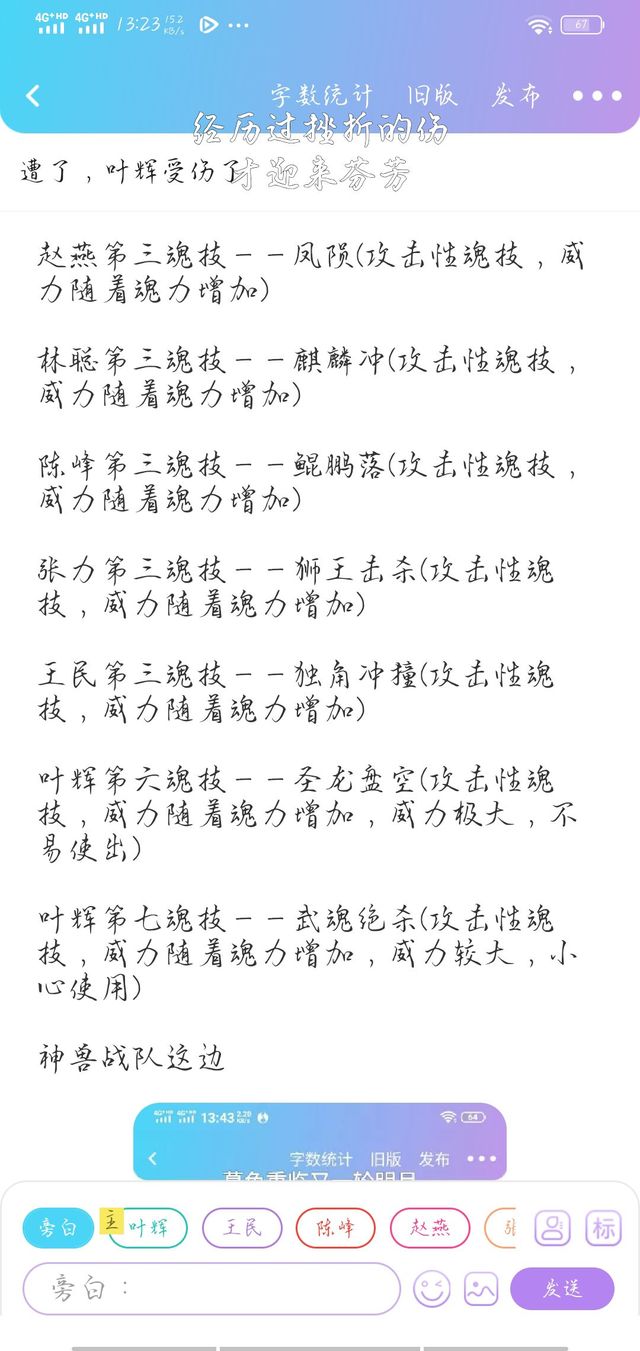 4G+HD 4G+HD 13:23 15.2 KB/s 67
字数统计 旧版 发布
经历过挫折的伤
才迎来芬芳
遭了，叶辉受伤了
赵燕第三魂技－－凤陨(攻击性魂技，威
力随着魂力增加)
林聪第三魂技－－麒麟冲(攻击性魂技，
威力随着魂力增加)
陈峰第三魂技－－鲲鹏落(攻击性魂技，
威力随着魂力增加)
张力第三魂技－－狮王击杀(攻击性魂
技，威力随着魂力增加)
王民第三魂技－－独角冲撞(攻击性魂
技，威力随着魂力增加)
叶辉第六魂技－－圣龙盘空(攻击性魂
技，威力随着魂力增加，威力极大，不
易使出)
叶辉第七魂技－－武魂绝杀(攻击性魂
技，威力随着魂力增加，威力较大，小
心使用)
神兽战队这边
4G+HD 4G+HD 13:43 2.20 KB/s 64
字数统计 旧版 发布
旁白 主 叶辉 王民 陈峰 赵燕 标
旁白：
发送